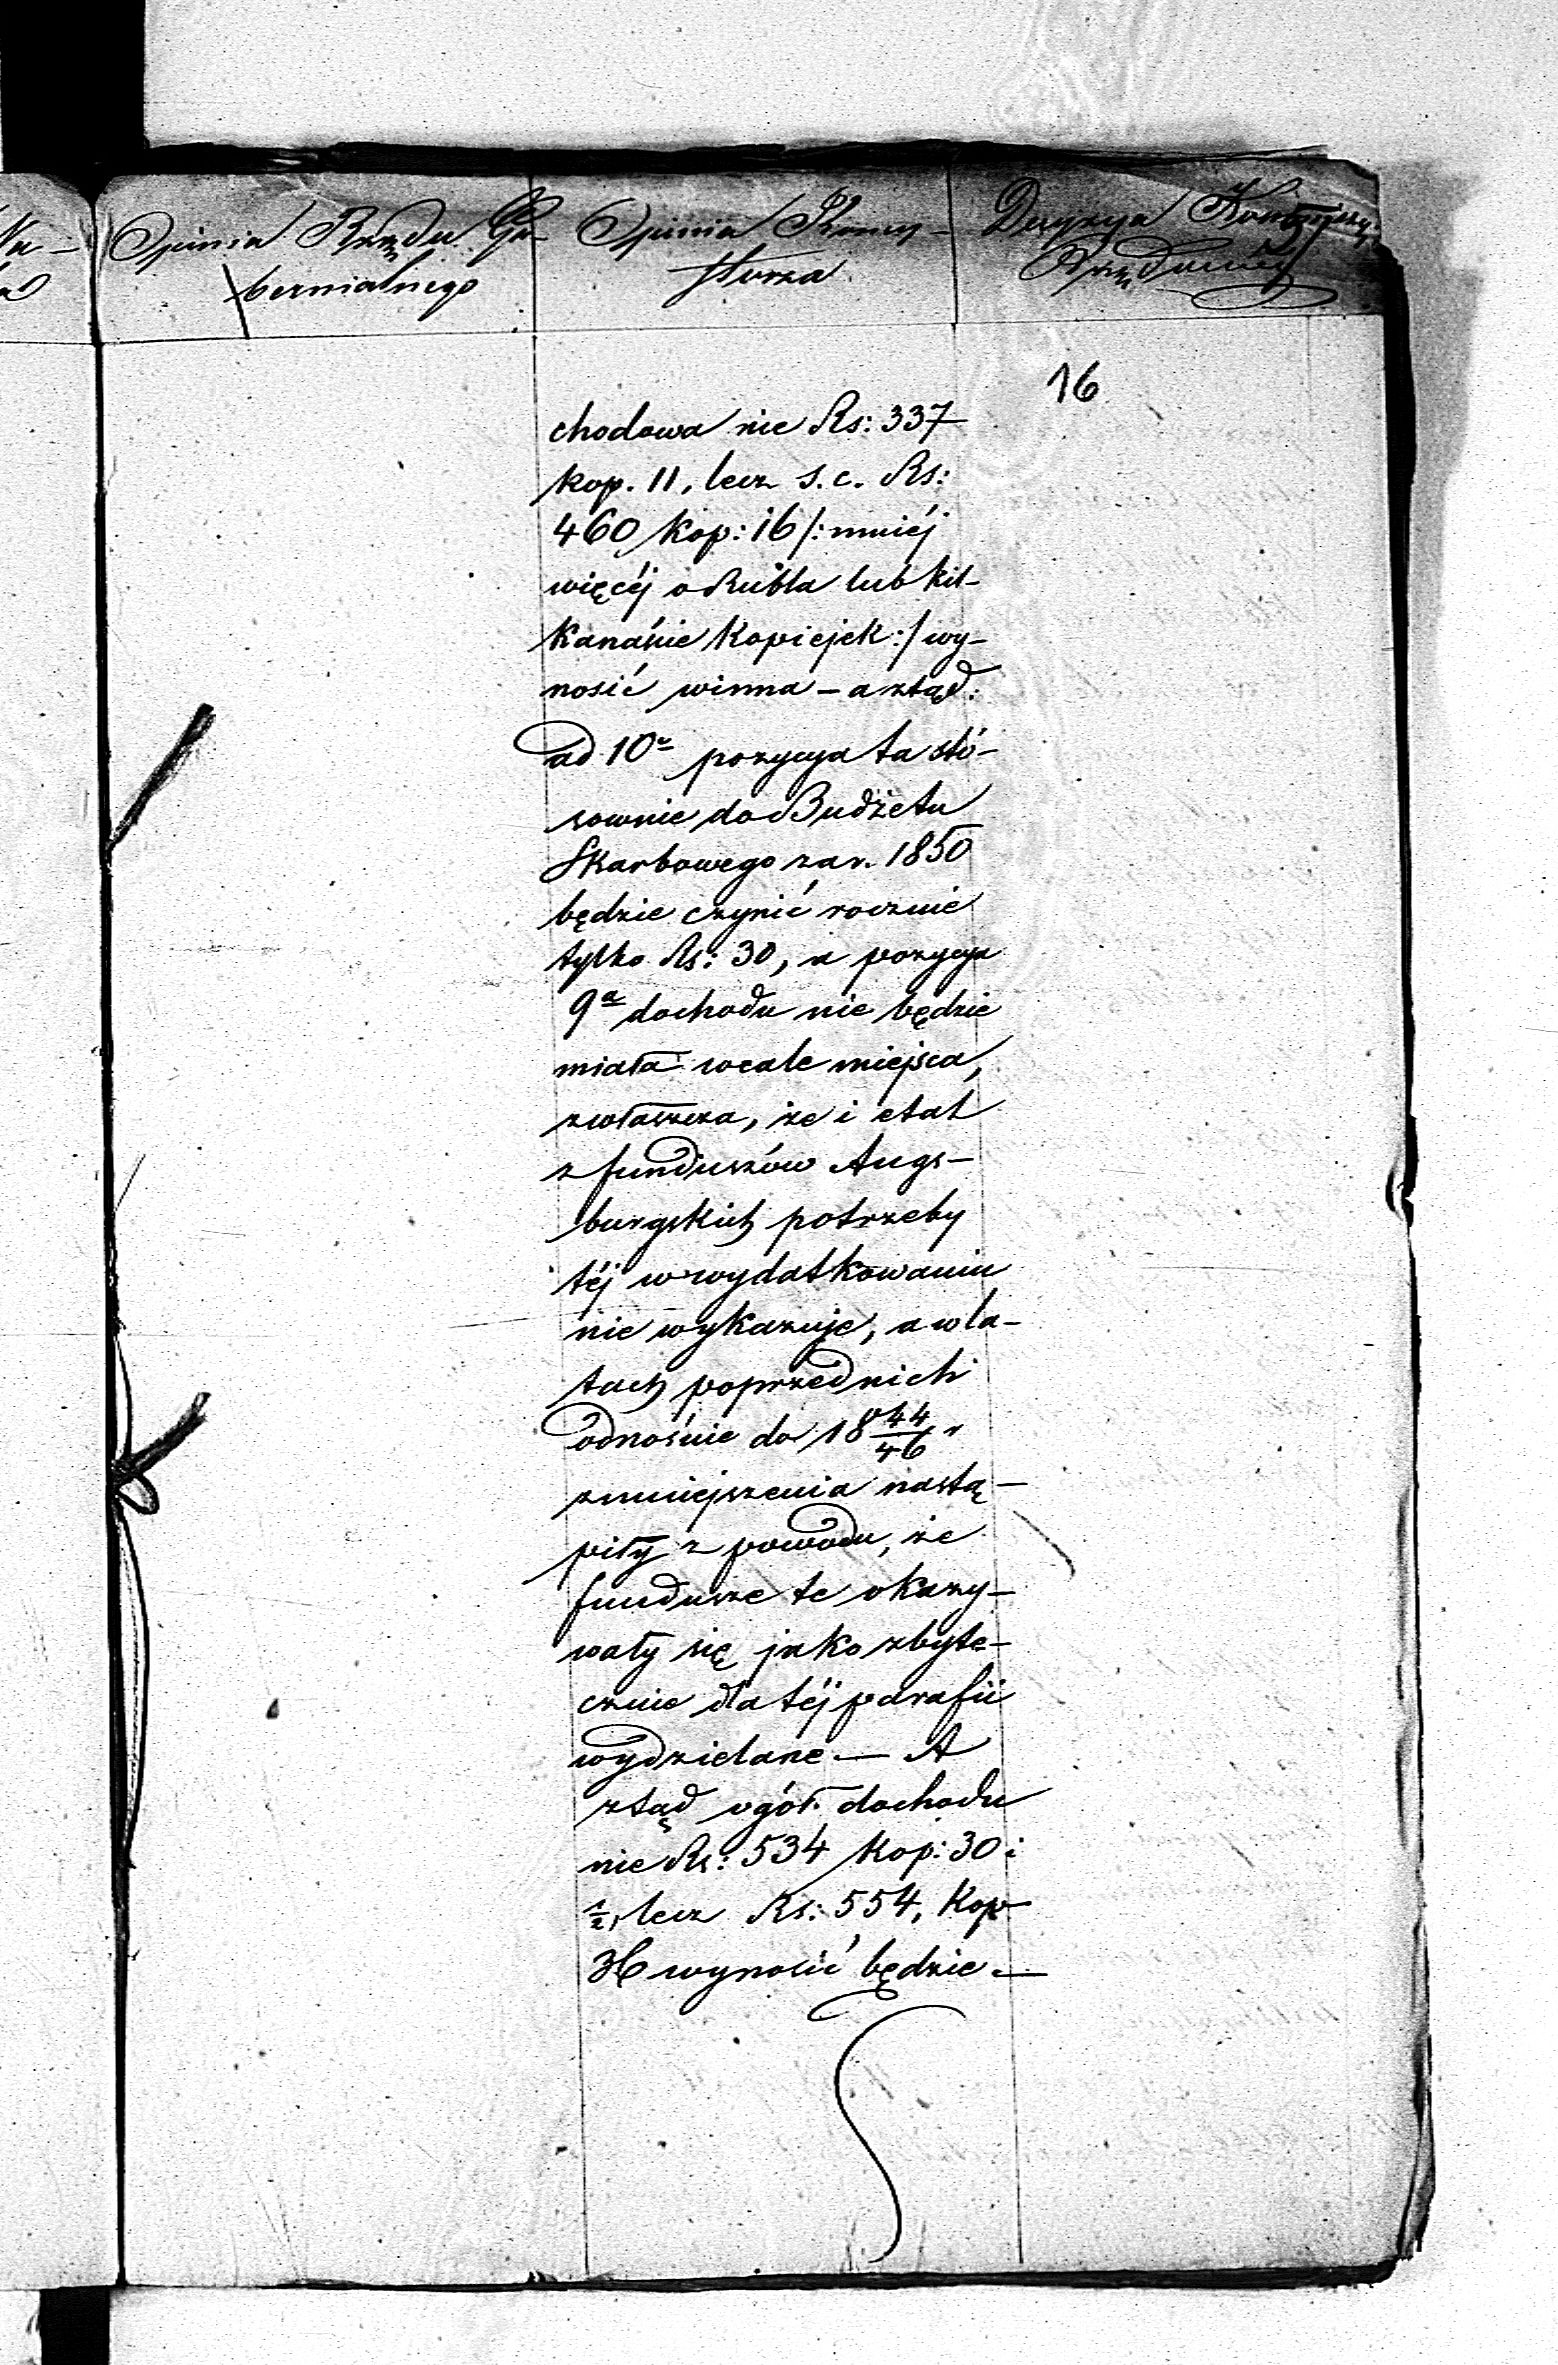 Opinia Rządu Gu-
bernialnego
Opinia Konsy-
storza
Decyzya Kommissyi
Rządowéj
16
chodowa nie Rs: 337
kop. 11, lecz s.c. Rs:
460 kop: 16 /: mniéj
więcéj o Rubla lub kil-
kanaście kopiejek :/ wy-
nosić winna – a ztąd:
ad 10° pozycya ta stó-
sownie do Budżetu
Skarbowego za r. 1850
będzie czynić rocznie
tylko Rs: 30, a pozycya
9a dochodu nie będzie
miała wcale miejsca,
zwłaszcza, że i etat
z funduszów Augs-
burgskich potrzeby
téj w wydatkowaniu
nie wykazuje, a w la-
tach poprzednich
odnośnie do 18 44/46 r
zmniejszenia nastą-
piły z powodu, że
fundusze te okazy-
wały się jako zbyte-
cznie dla téj parafii
wydzielane — A
ztąd ogół dochodu
nie Rs: 534 kop: 30 i
½, lecz Rs: 554, kop
36 wynosić będzie —